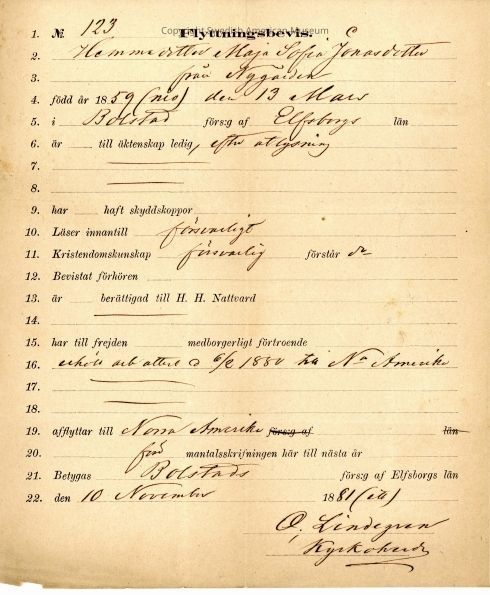 Copyright Swedish American Museum
1. № 123 Flyttningsbevis. C
2. Hemmadotter Maja Sofia Jonasdotter
3. från Nygården
4. född år 1859 (nio) den 13 Mars
5. i Bolstad förs:g af Elfsborgs län
6. är till äktenskap ledig, efter aflysning
7.
8.
9. har haft skyddskoppor
10. Läser innantill försvarligt
11. Kristendomskunskap försvarlig förstår d:o
12. Bevistat förhören
13. är berättigad till H. H. Nattvard
14.
15. har till frejden medborgerligt förtroende
16. erhöll arb attest d 6/2 1880 till Na Amerika
17.
18.
19. afflyttar till Norra Amerika förs:g af län
20. före mantalsskrifningen här till nästa år
21. Betygas Bolstads förs:g af Elfsborgs län
22. den 10 November 1881 (ett)
O. Lindegren
Kyrkoherde